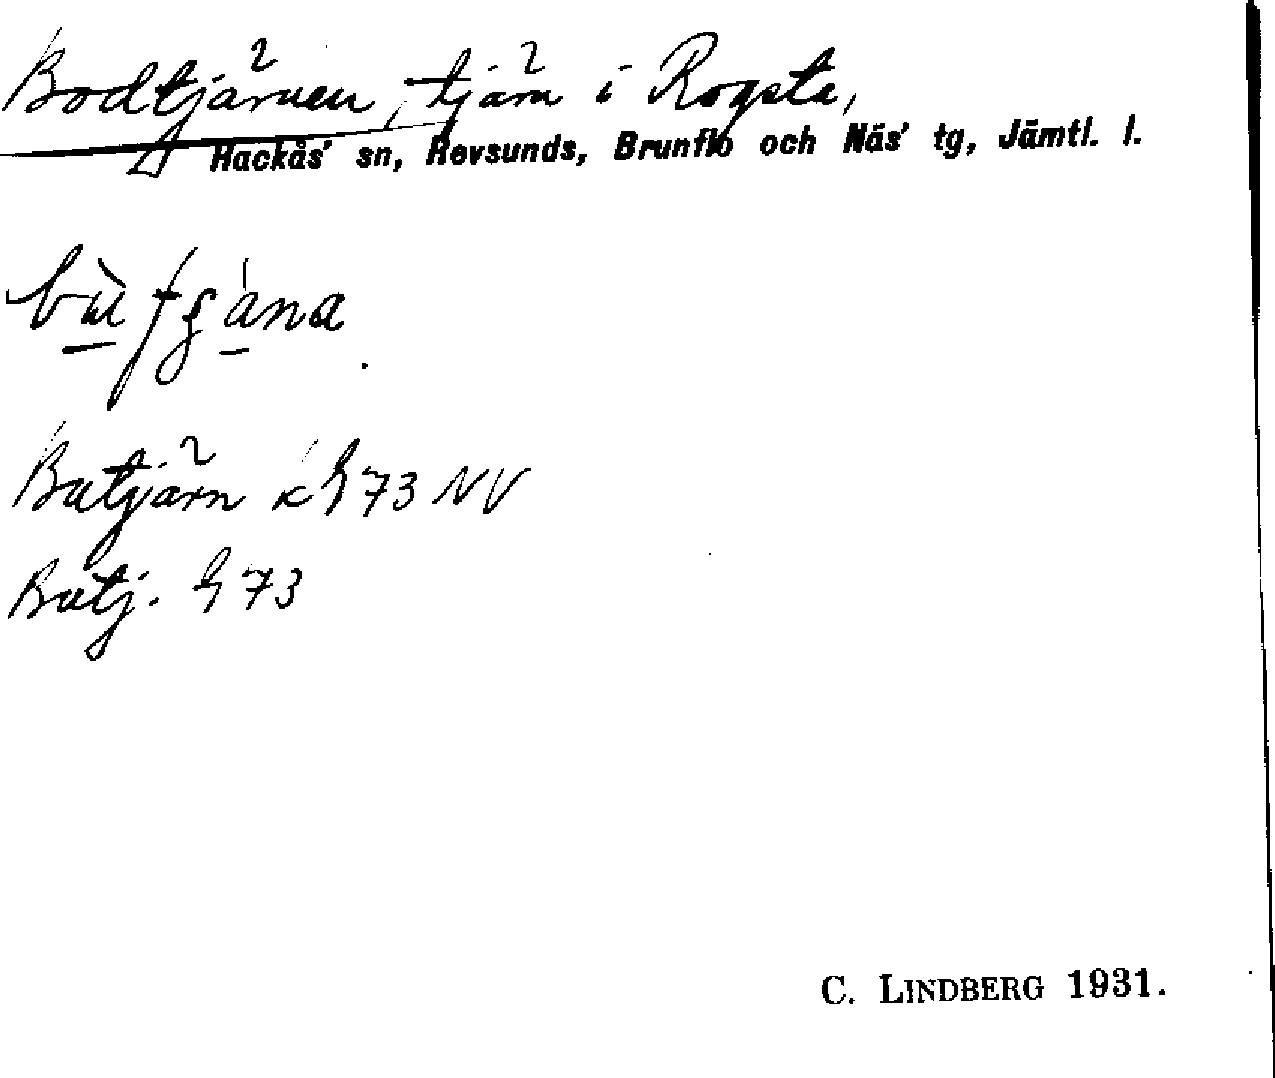 Bodtjärnen, tjärn i Rogsta,
Hackås' sn, Revsunds, Brunflo och Näs' tg, Jämtl. l.
Butjärn k 73 NV
Butj. 73
C. LINDBERG 1931.